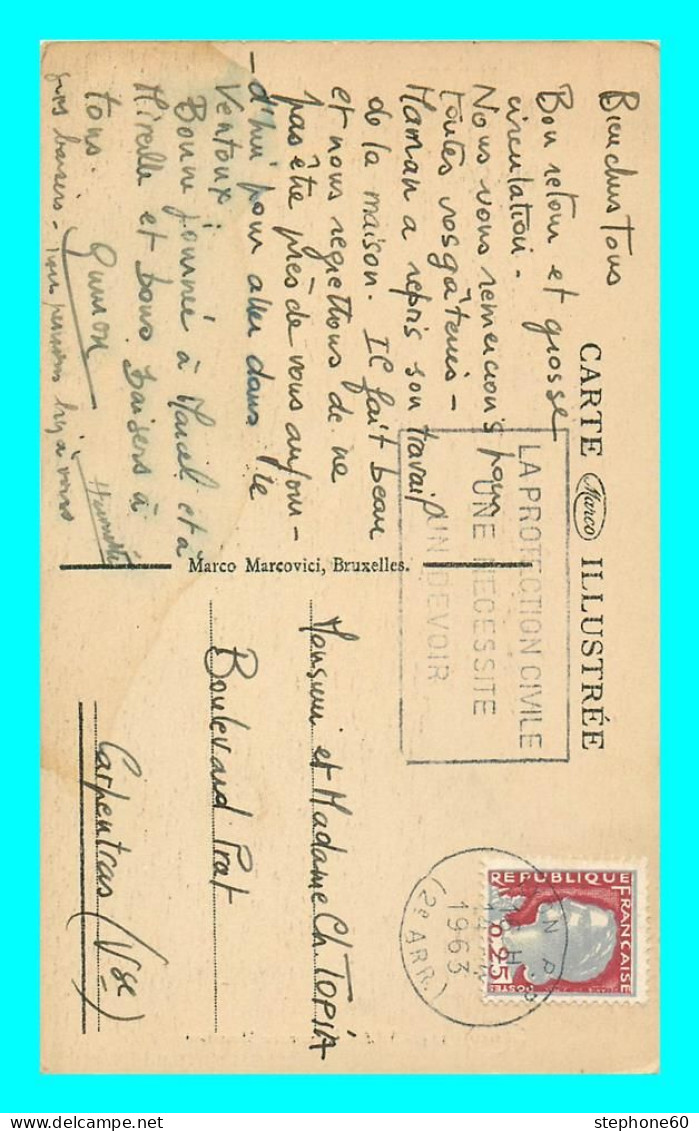 CARTE Marco ILLUSTRÉE
Bien chers Tous
Bon retour et grosse
circulation -
Nous vous remercions pour
toutes vos gâteries -
Maman a repris son travail
de la maison. Il fait beau
et nous regrettons de ne
pas être près de vous aujour-
-d'hui pour aller dans le
Ventoux
Bonne journée à Marcel et à
Mireille et bons baisers à
tous.
gros baisers - nous pensons à vous
Marco Marcovici, Bruxelles.
LA PROTECTION CIVILE
UNE NECESSITE
UN DEVOIR
REPUBLIQUE FRANÇAISE
0.25
1963
(2e ARR.)
Monsieur et Madame Ch. TOPIA
Boulevard Prat
Carpentras (Vse)
stephone60